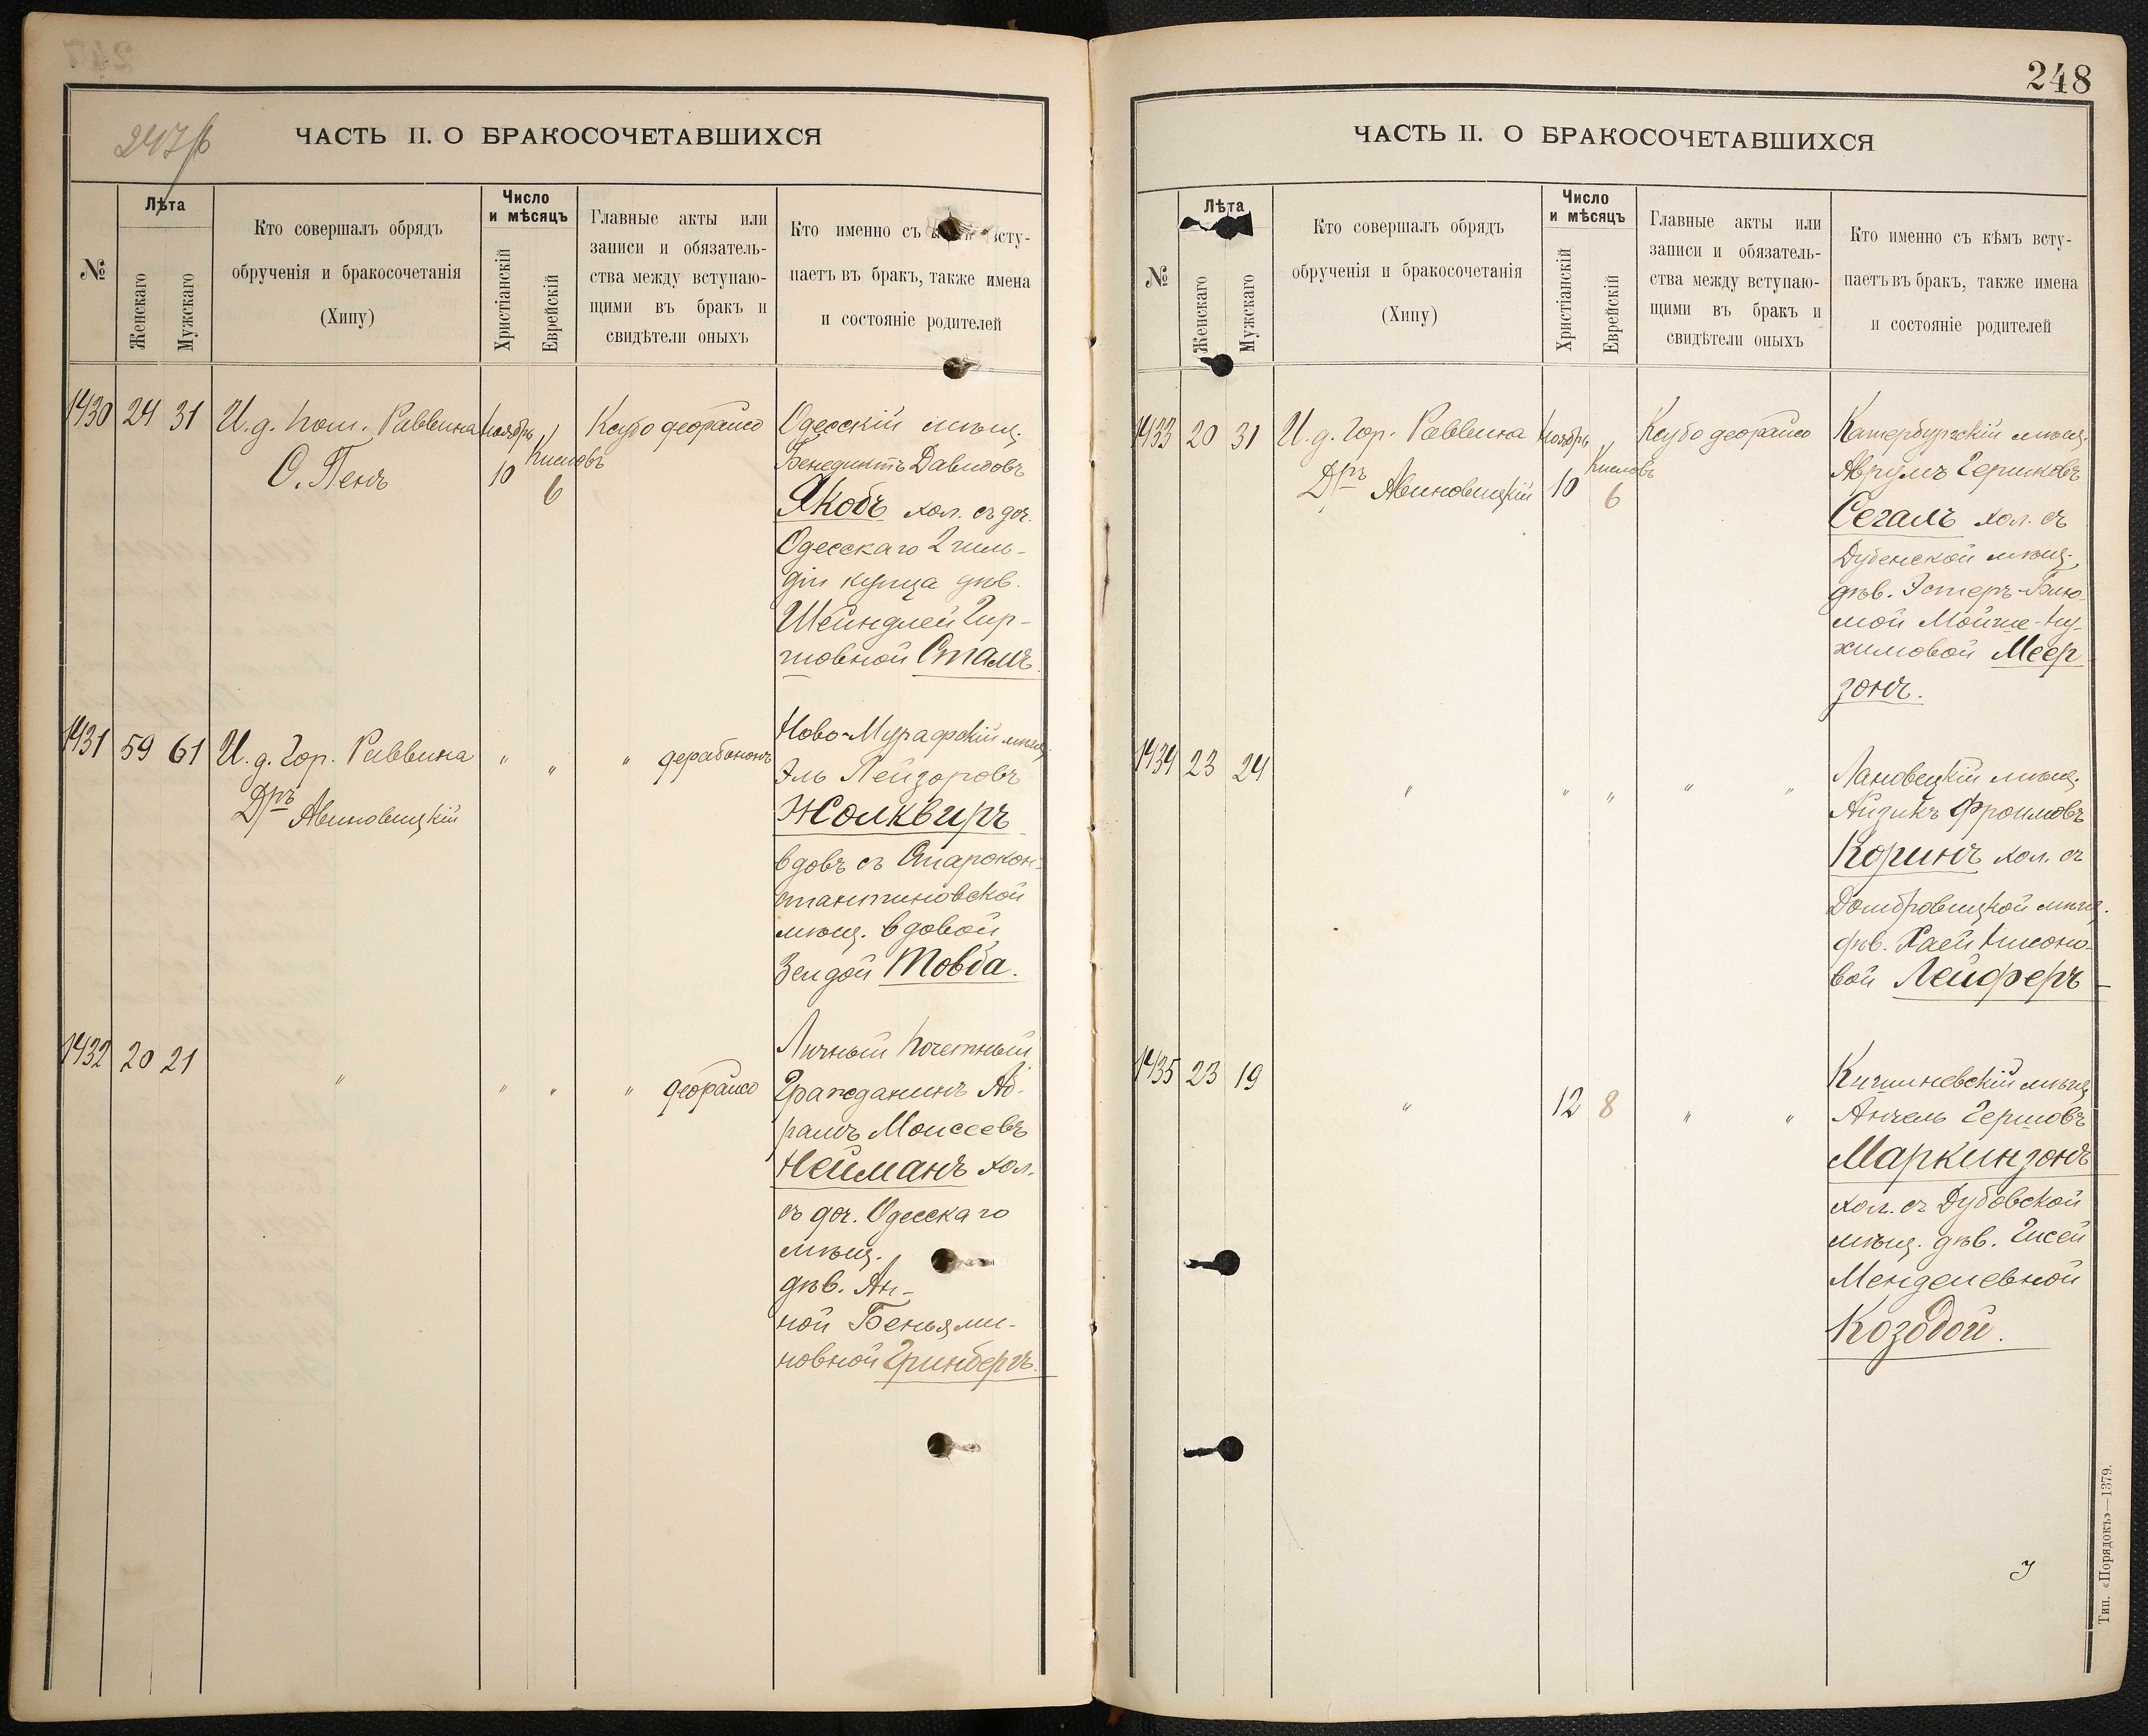 247/б
ЧАСТЬ II. О БРАКОСОЧЕТАВШИХСЯ
№
Лѣта
Женскаго
Мужскаго
Кто совершалъ обрядъ
обрученія и бракосочетанія
(Хипу)
Число
и мѣсяцъ
Христіанскій
Еврейскій
Главные акты или
записи и обязатель-
ства между вступаю-
щими въ бракъ и
свидѣтели оныхъ
Кто именно съ всту-
паетъ въ брак, также имена
и состояніе родителей
1430 24 31 И. д. пом. Раввина Ноябрь Ксубо деорайсо
О. Пенъ 10 Кислевъ 6
Одесскій мѣщ.
Бенедиктъ Давидовъ
Якобъ хол. съ доч.
Одесскаго 2 гиль-
діи купца дѣв.
Шейндлей Гир-
шовной Сталь.
1431 59 61 И. д. Гор. Раввина " " " дерабононъ
Дръ Авиновицкій
Ново-Мурафскій мѣщ.
Эль Лейзоровъ
Жолквиръ
вдовъ съ Старокон-
стантиновской
мѣщ. вдовой
Зелдой Товба.
1432 20 21 " " " " деорайсо
Личный Почетный
Гражданинъ Аб-
рамъ Моисеевъ
Нейманъ хол.
съ доч. Одесскаго
мѣщ.
дѣв. Ан-
ной Беньями-
новной Гринбергъ.
248
ЧАСТЬ II. О БРАКОСОЧЕТАВШИХСЯ
№
Лѣта
Женскаго
Мужскаго
Кто совершалъ обрядъ
обрученія и бракосочетанія
(Хипу)
Число
и мѣсяцъ
Христіанскій
Еврейскій
Главные акты или
записи и обязатель-
ства между вступаю-
щими въ бракъ и
свидѣтели оныхъ
Кто именно съ кѣмъ всту-
паетъ въ брак, также имена
и состояніе родителей
1433 20 31 И. д. Гор. Раввина Ноябрь Ксубо деорайсо
Дръ Авиновицкій 10 Кислевъ 6
Катербургскій мѣщ.
Аврумъ Гершковъ
Сегалъ хол. съ
Дубенской мѣщ.
дѣв. Эстеръ-Блю-
мой Мойше-Ну-
химовой Меер-
зонъ.
1434 23 24 " " " " "
Лановецкій мѣщ.
Айзикъ Фроимовъ
Коринъ хол. съ
Домбровицкой мѣщ.
дѣв. Хаей
вой Лейферъ
1435 23 19 " 12 8 " "
Кишиневскій мѣщ.
Анчель Гершовъ
Маркинзонъ
хол. съ Дубовской
мѣщ. дѣв. Гисей
Менделевной
Козодой.
Тип. «Порядокъ»—1379.